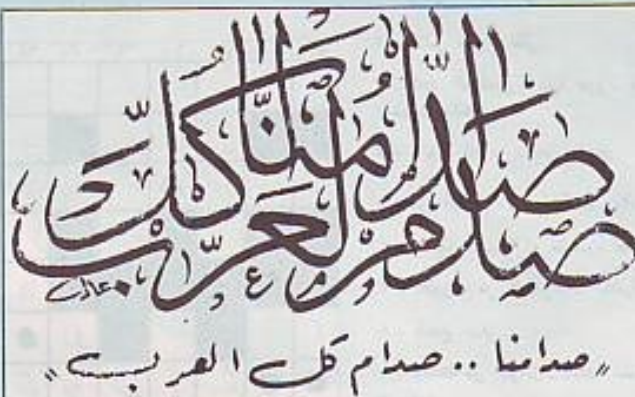 صدّامنا صدام كلّ العرب
"صدامنا .. صدام كل العرب"